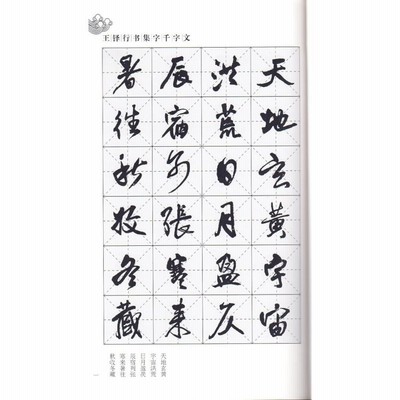 王铎行书集字千字文
天地玄黄宇宙
洪荒日月盈仄
辰宿列張寒来
暑往秋收冬藏
天地玄黄
宇宙洪荒
日月盈昃
辰宿列张
寒来暑往
秋收冬藏
一